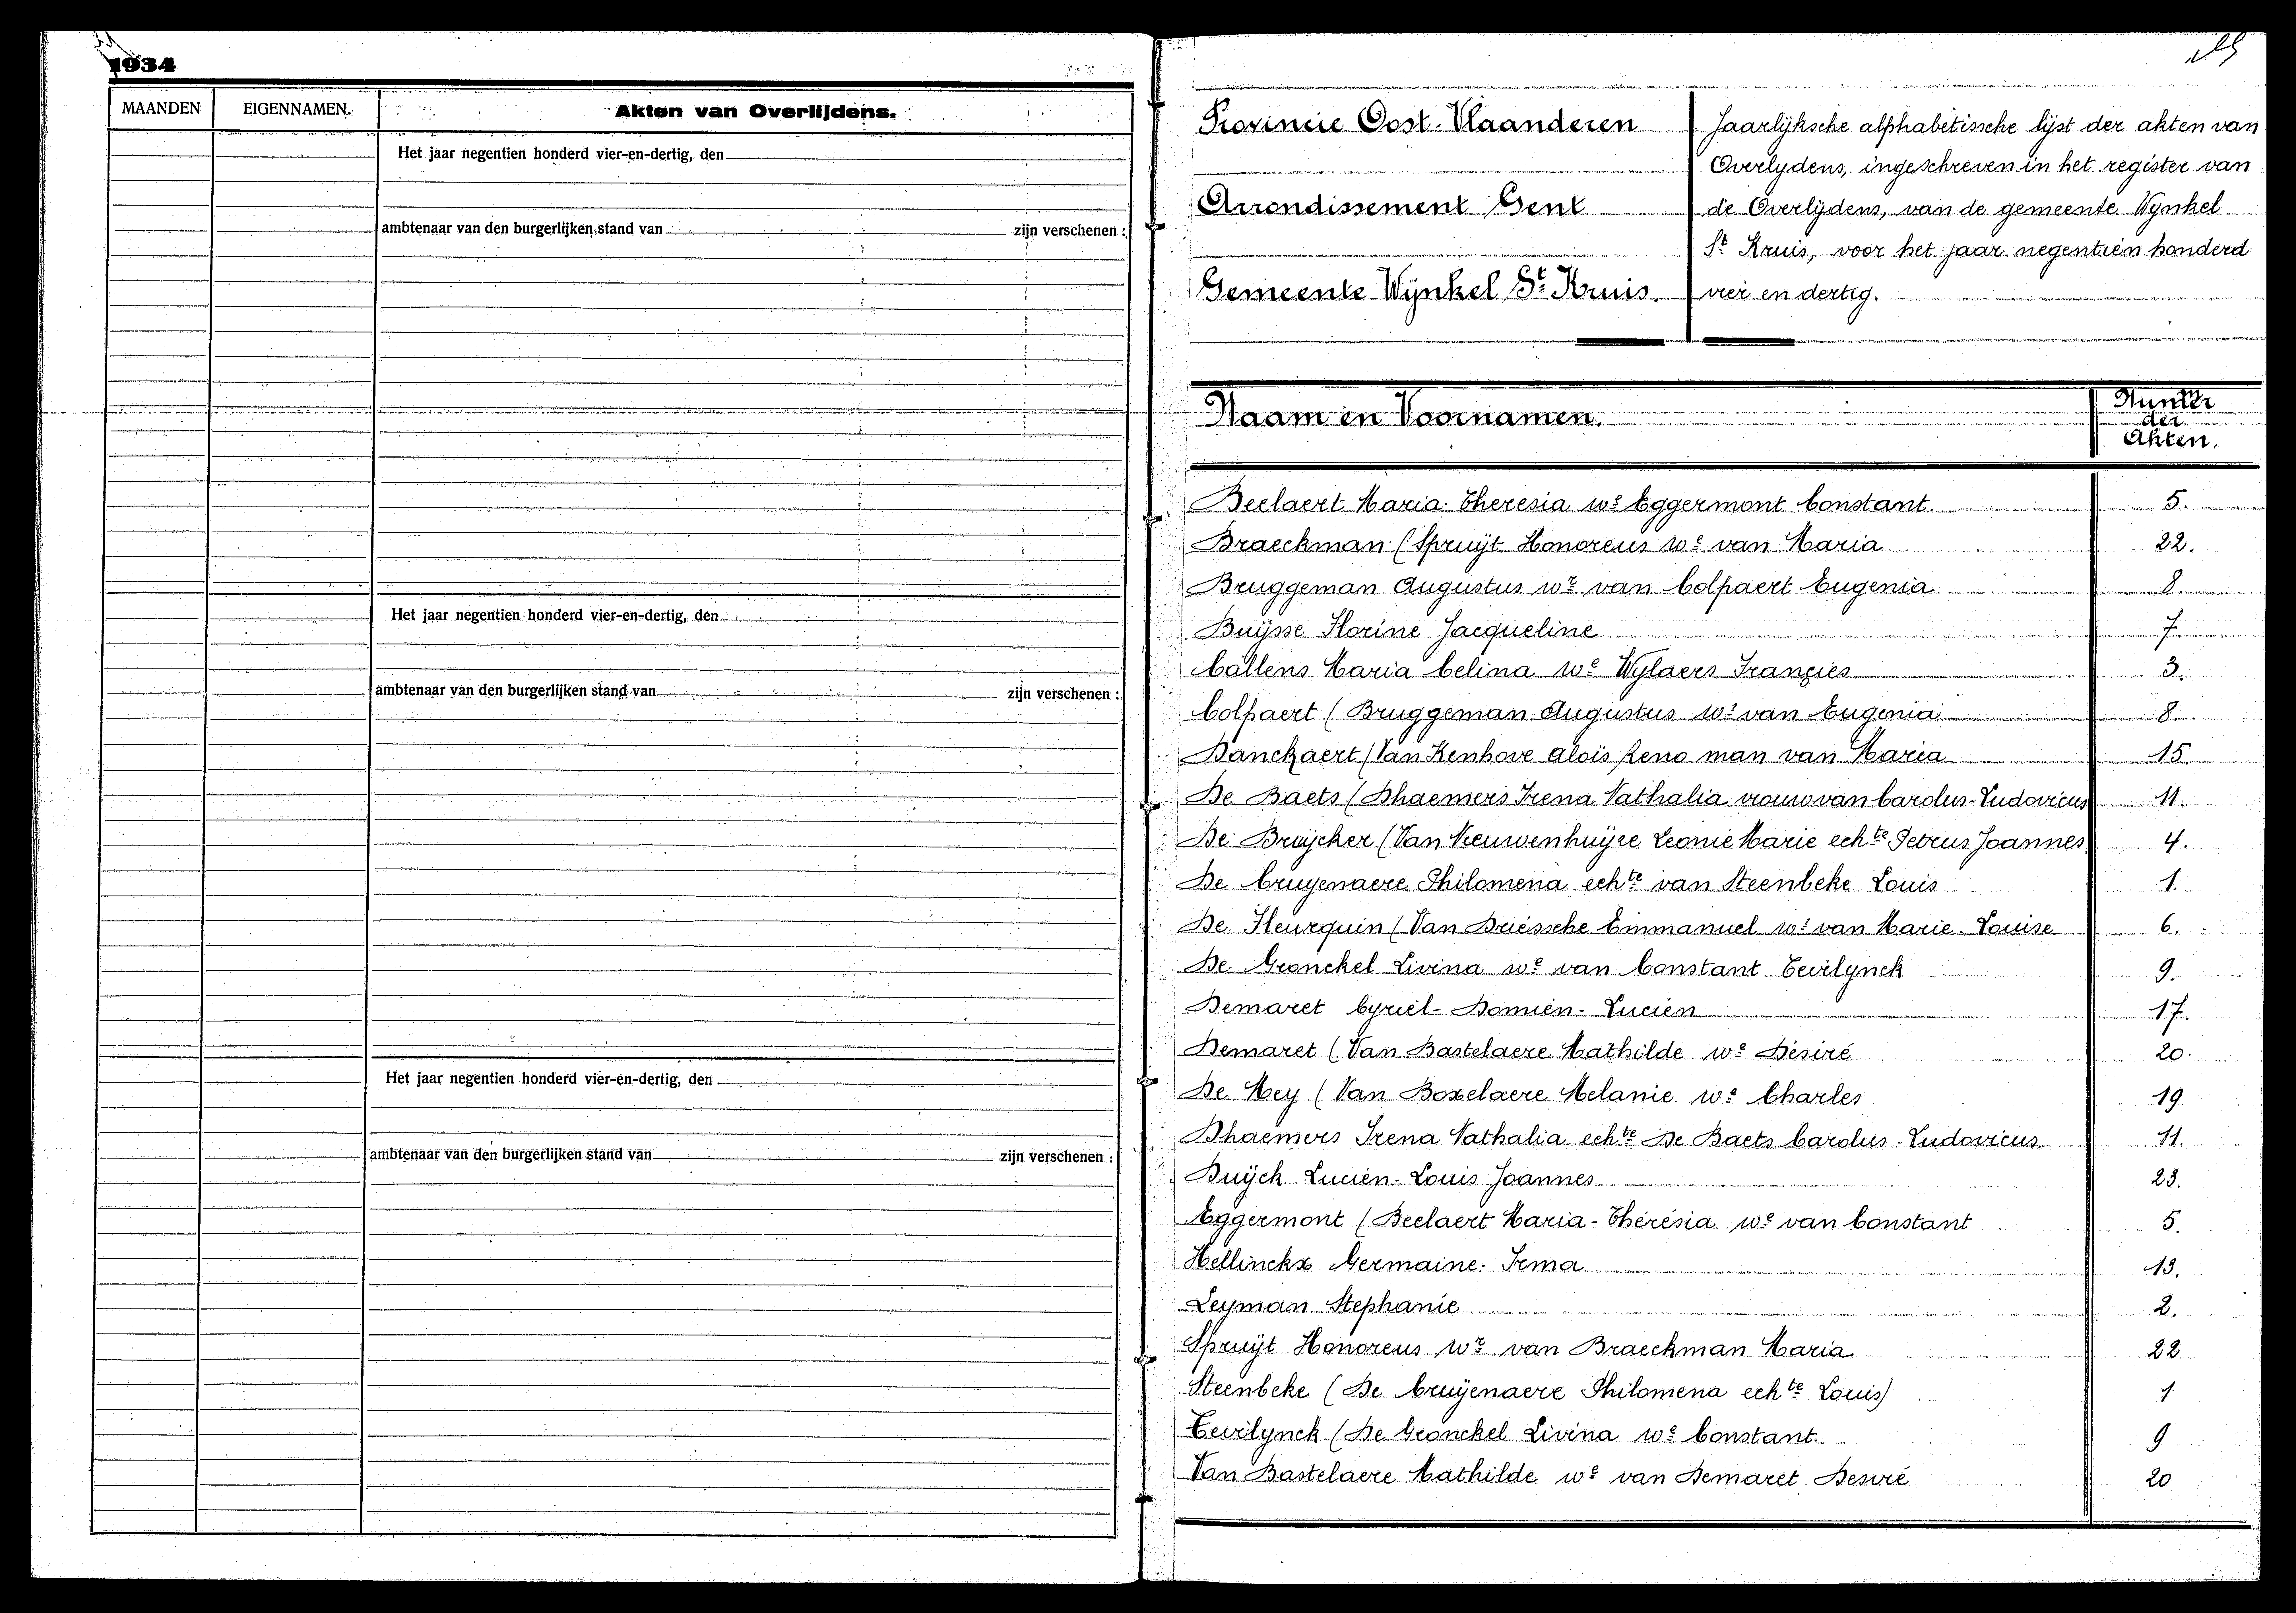 1934
MAANDEN
EIGENNAMEN.
Akten van Overlijdens.
Het jaar negentien honderd vier-en-dertig, den
ambtenaar van den burgerlijken stand van
zijn verschenen :
Het jaar negentien honderd vier-en-dertig, den
ambtenaar van den burgerlijken stand van
zijn verschenen :
Het jaar negentien honderd vier-en-dertig, den
ambtenaar van den burgerlijken stand van
zijn verschenen :
Provincie Oost-Vlaanderen
Arrondissement Gent
Gemeente Wynkel St. Kruis.
Jaarlyksche alphabetissche lijst der akten van
Overlydens, ingeschreven in het register van
de Overlijdens, van de gemeente Wynkel
St. Kruis, voor het jaar negentien honderd
vier en dertig.
Naam en Voornamen.
der
Akten.
Beelaert Maria Theresia we Eggermont Constant. 5.
Braeckman (Spruijt Honoreus wr van Maria 22.
Bruggeman Augustus wr van Colpaert Eugenia 8.
Buijsse Florine Jacqueline 7.
Callens Maria Celina we Wylaers Franzies 3.
Colpaert (Bruggeman Augustus wr van Eugenia 8.
Danckaert (Van Kenhove Alois Reno man van Maria 15.
De Baets (Dhaemers Irena Nathalia vrouw van Carolus-Ludovicus 11.
De Bruijcker (Van Nieuwenhuijse Leonie Marie echte Petrus Joannes 4.
De Cruyenaere Philomena echte van Steenbeke Louis 1.
De Fleurquin (Van Driessche Emmanuel wr van Marie-Louise 6.
De Gronckel Livina we van Constant Tevilynck 9.
Demaret Cyriel-Domien-Lucien 17.
Demaret (Van Bastelaere Mathilde we Désiré 20.
De Mey (Van Boxelaere Melanie we Charles 19
Dhaemers Irena Nathalia echte De Baets Carolus-Ludovicus 11.
Duijck Lucien-Louis Joannes 23.
Eggermont (Beelaert Maria-Thérésia we van Constant 5.
Hellinckx Germaine-Irma 13.
Leyman Stephanie 2.
Spruijt Honoreus wr van Braeckman Maria 22
Steenbeke (De Cruijenaere Philomena echte Louis) 1
Tevilynck (De Gronckel Livina we Constant. 9
Van Bastelaere Mathilde we van Demaret Desiré 20